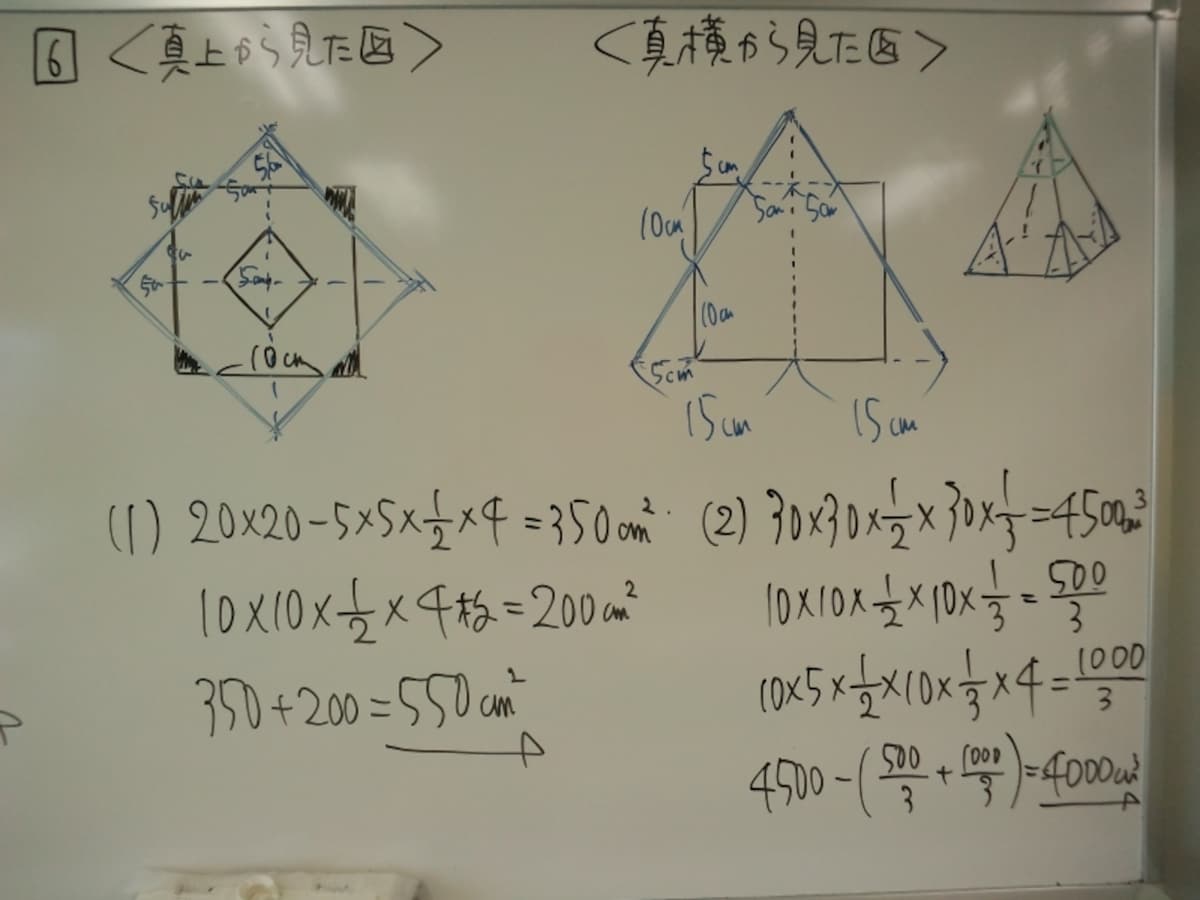 6 <真上から見た図>
5cm
5cm
5cm
5cm
5cm
10cm
<真横から見た図>
5cm
5cm
5cm
10cm
10cm
5cm
15cm
15cm
(1) 20×20-5×5×1/2×4=350cm²
10×10×1/2×4枚=200cm²
350+200=550cm²
(2) 30×30×1/2×30×1/3=4500cm³
10×10×1/2×10×1/3=500/3
10×5×1/2×10×1/3×4=1000/3
4500-(500/3+1000/3)=4000cm³